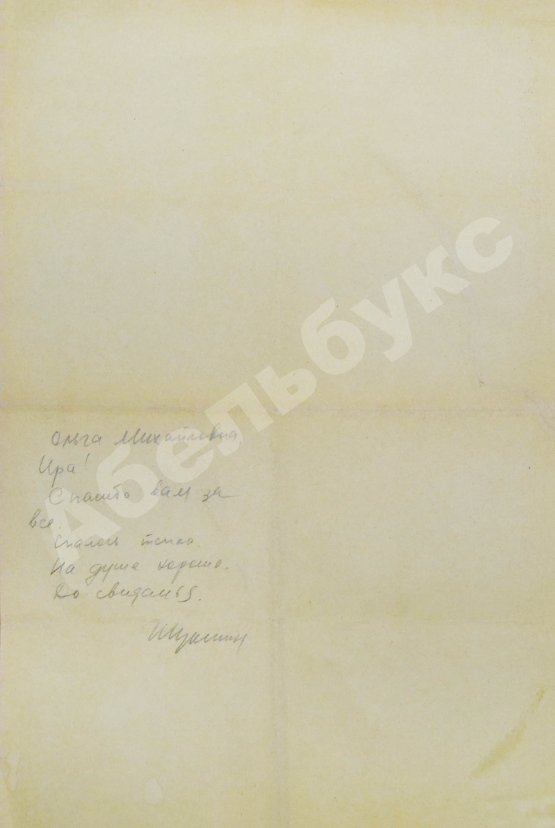 Ольга Михайловна,
Ира!
Спасибо вам за
все.
Спалось
На душе хорошо.
До свиданья.
Шукшин
Абельбукс